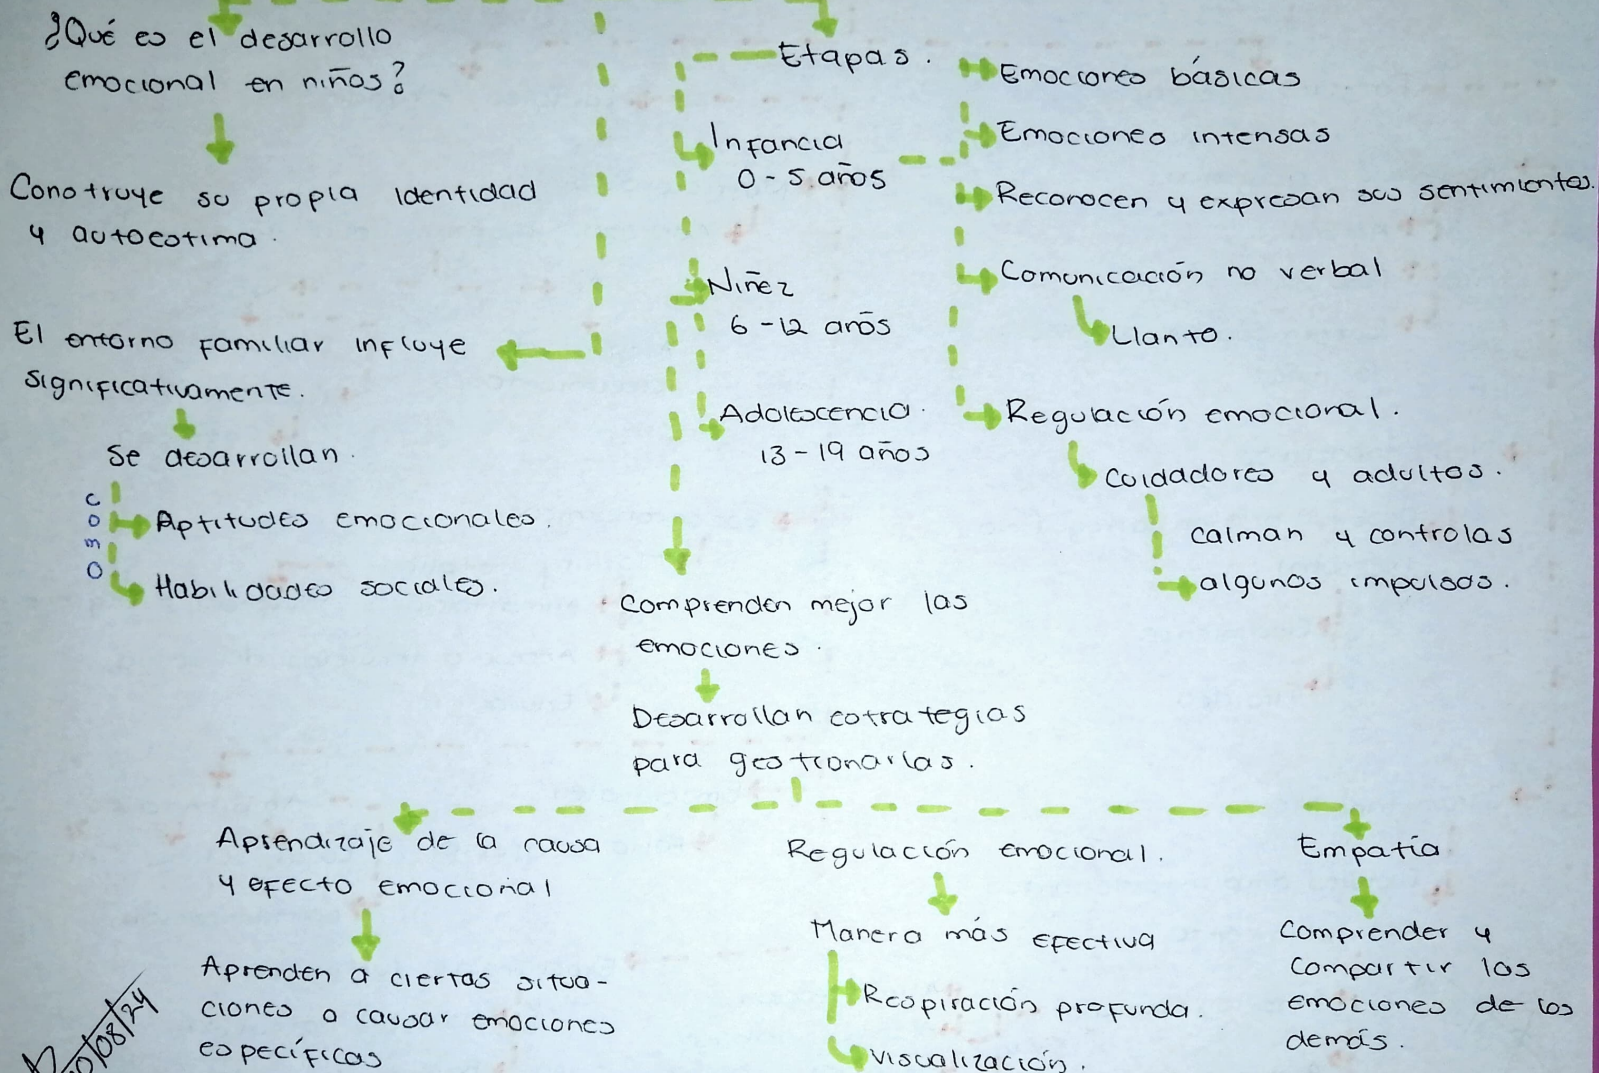 ¿Qué es el desarrollo
emocional en niños?
Construye su propia identidad
y autoestima.
El entorno familiar influye
significativamente.
Se desarrollan.
Como
Aptitudes emocionales.
Habilidades sociales.
Etapas.
Infancia
0 - 5 años
Niñez
6 - 12 años
Adolescencia.
13 - 19 años
Emociones básicas
Emociones intensas
Reconocen y expresan sus sentimientos.
Comunicación no verbal
Llanto.
Regulación emocional.
Cuidadores y adultos.
calman y controlas
algunos impulsos.
Comprenden mejor las
emociones.
Desarrollan estrategias
para gestionarlas.
Aprendizaje de la causa
y efecto emocional
Aprenden a ciertas situa-
ciones o causar emociones
específicas
Regulación emocional.
Manera más efectiva
Respiración profunda.
Visualización.
Empatía
Comprender y
compartir las
emociones de los
demás.
/08/24